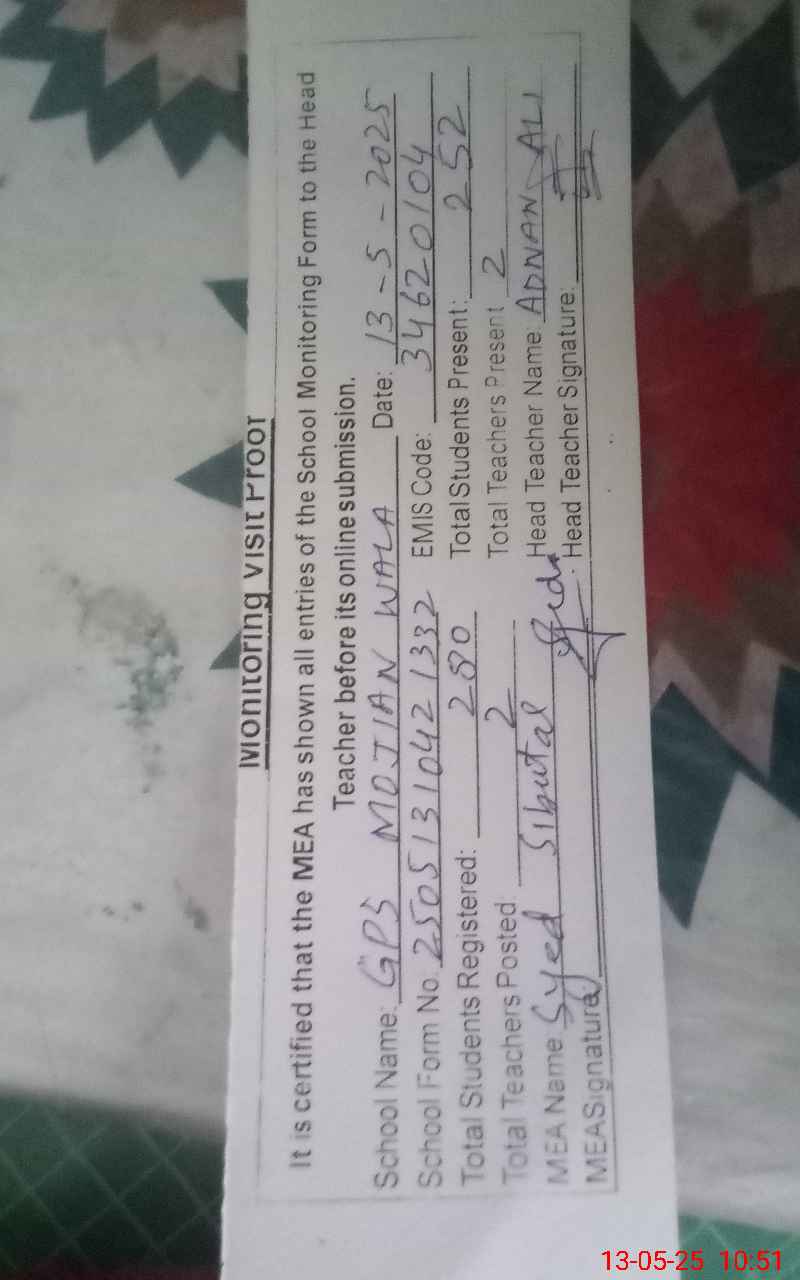 Monitoring Visit Proof
It is certified that the MEA has shown all entries of the School Monitoring Form to the Head
Teacher before its online submission.
School Name: GPS MOJIAN WALA Date: 13-5-2025
School Form No. 25051310421332 EMIS Code: 34620104
Total Students Registered: 280 Total Students Present: 252
Total Teachers Posted: 2 Total Teachers Present 2
MEA Name: Syed Head Teacher Name: ADNAN ALI
MEA Signature: Head Teacher Signature:
13-05-25 10:51